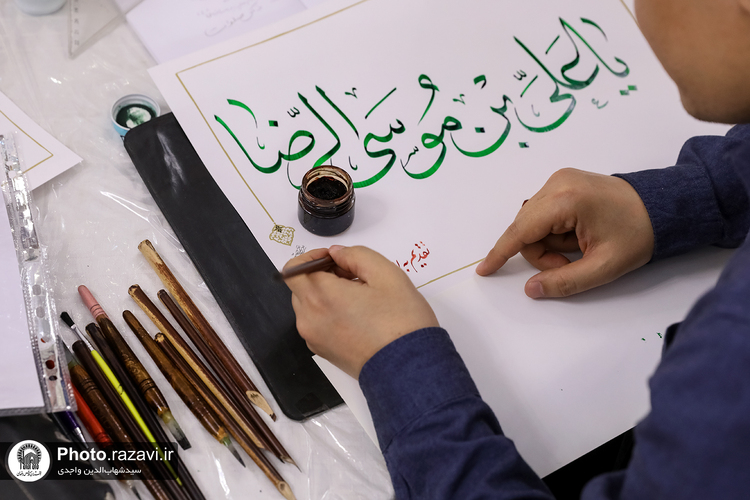 یا علی بن موسی الرضا
تقدیم به
Photo.razavi.ir
سیدشهاب‌الدین واجدی